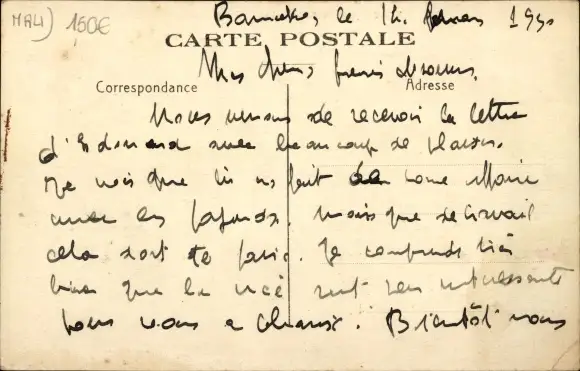 MALI 150€
Bamako, le 14 février 1950
CARTE POSTALE
Mes chers frères et soeurs,
Correspondance Adresse
Nous venons de recevoir la lettre
d'Edouard avec beaucoup de plaisir.
Je vois que fait bonne affaire
avec les. Mais que de travail
cela doit te. Je comprends très
bien que la soit peu intéressante
pour vous à. Bientôt nous